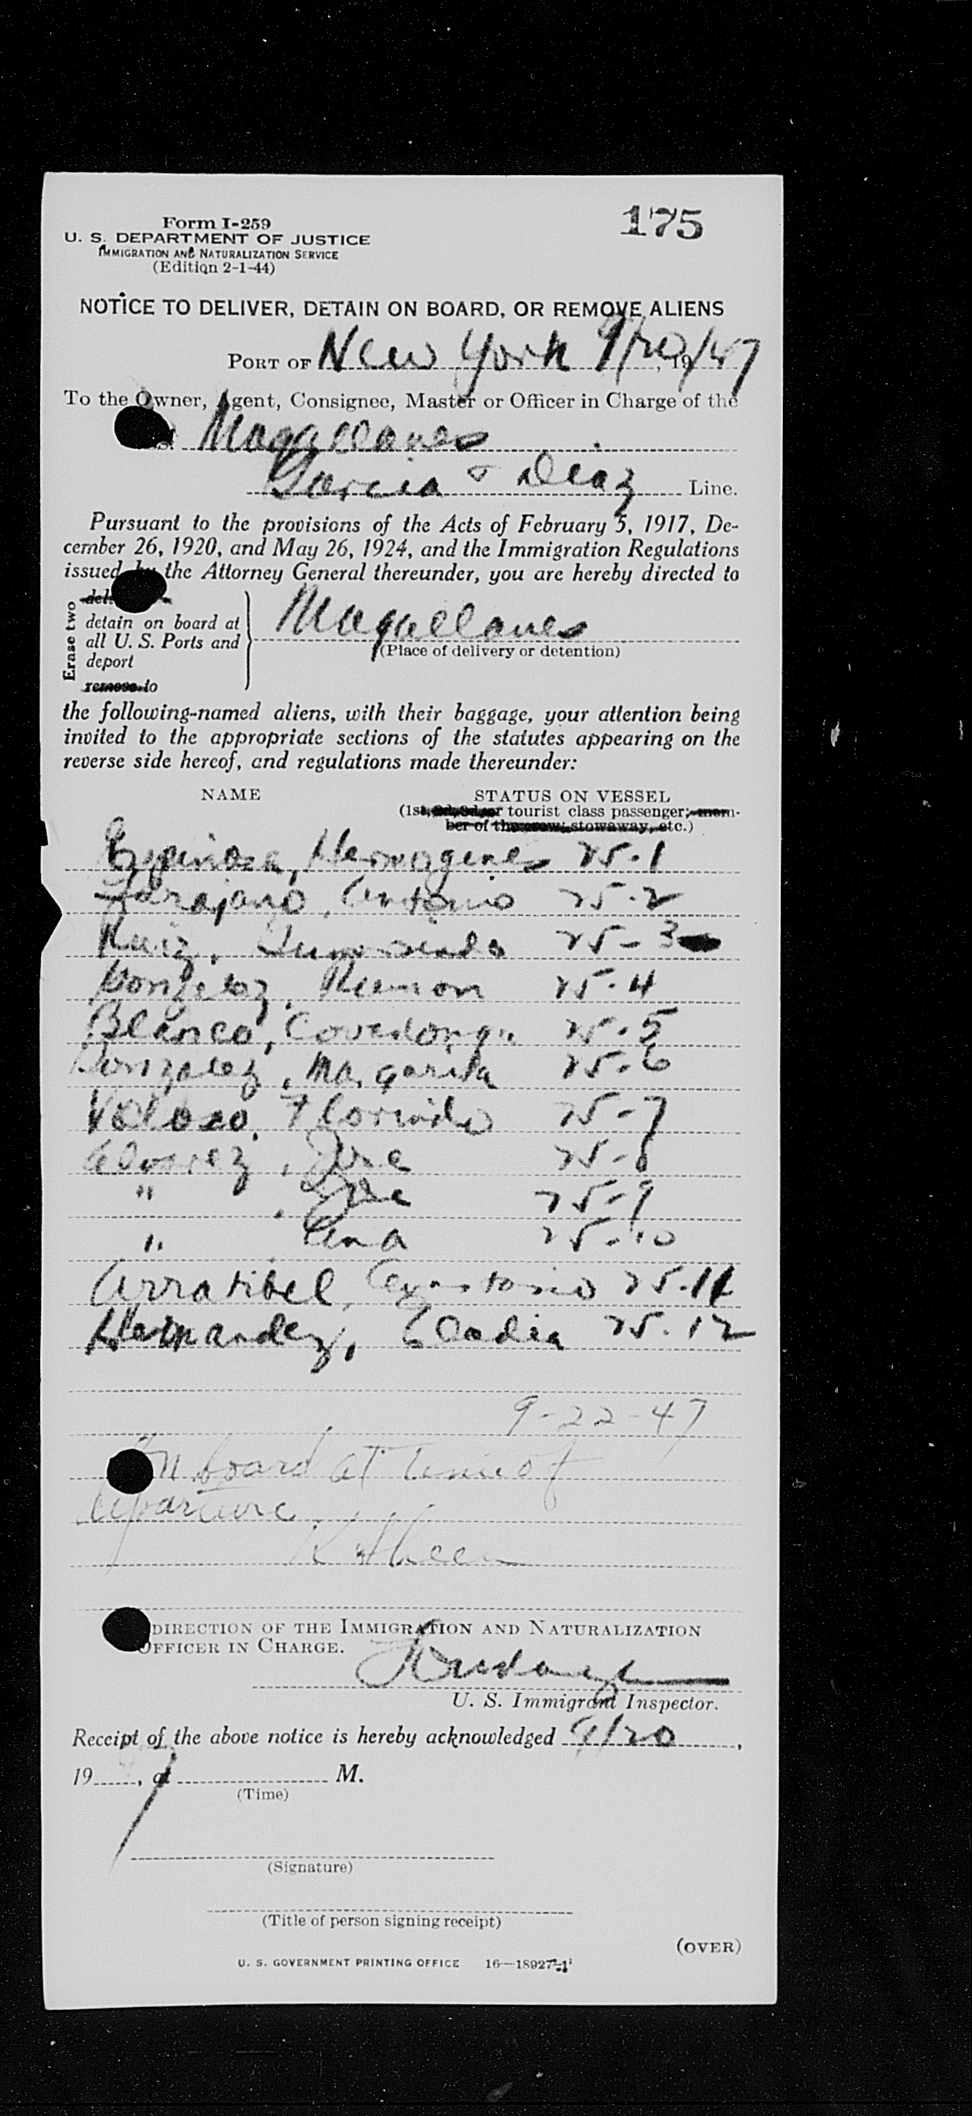 175
Form I-259
U. S. DEPARTMENT OF JUSTICE
IMMIGRATION AND NATURALIZATION SERVICE
(Edition 2-1-44)
NOTICE TO DELIVER, DETAIN ON BOARD, OR REMOVE ALIENS
PORT OF New York 9/20/47, 19
To the Owner, Agent, Consignee, Master or Officer in Charge of the
Magallanes
Garcia & Diaz Line.
Pursuant to the provisions of the Acts of February 5, 1917, De-
cember 26, 1920, and May 26, 1924, and the Immigration Regulations
issued by the Attorney General thereunder, you are hereby directed to
Erase two
detain on board at
all U. S. Ports and
deport
remove to
Magallanes
(Place of delivery or detention)
the following-named aliens, with their baggage, your attention being
invited to the appropriate sections of the statutes appearing on the
reverse side hereof, and regulations made thereunder:
NAME STATUS ON VESSEL
(1st, 2d, 3d, or tourist class passenger; mem-
ber of the crew; stowaway, etc.)
Espinosa, Hermogenes 25-1
Antonio 25-2
Ruiz, 25-3
Gonzalez, Ramon 25-4
Blanco, Covadonga 25-5
Gonzalez, Margarita 25-6
Veloso, Florindo 25-7
Alvarez, Jose 25-8
" , Jose 25-9
" , Ana 25-10
Arratibel, 25-11
Hernandez, Eladia 25-12
9-22-47
On board at time of
departure
DIRECTION OF THE IMMIGRATION AND NATURALIZATION
OFFICER IN CHARGE.
U. S. Immigrant Inspector.
Receipt of the above notice is hereby acknowledged 9/20,
19, at M.
(Time)
(Signature)
(Title of person signing receipt)
(OVER)
U. S. GOVERNMENT PRINTING OFFICE 16—18927-1